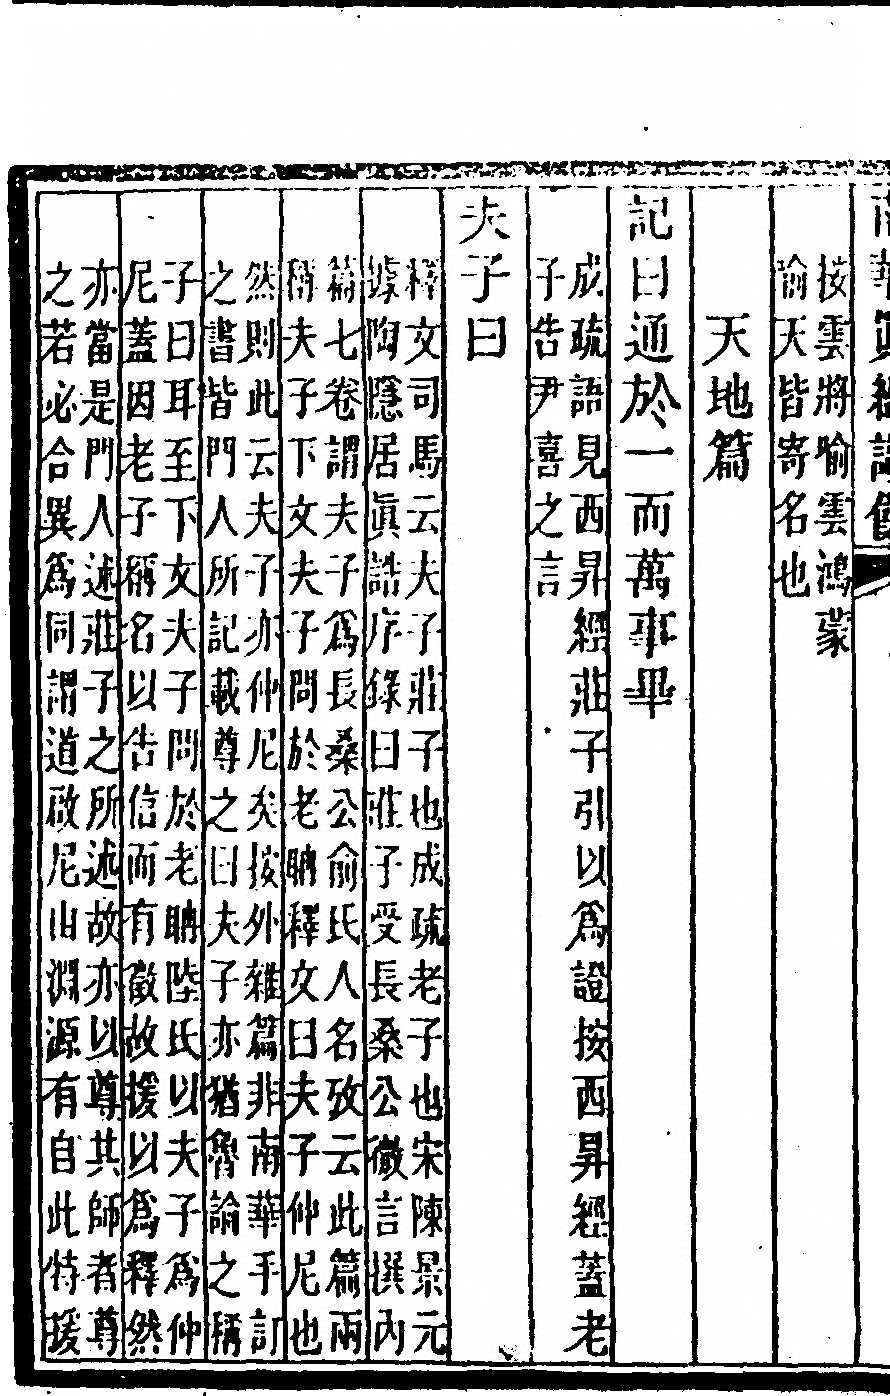 南華眞經識餘
按雲將喻雲鴻蒙
喻天皆寄名也
天地篇
記曰通於一而萬事畢
成疏語見西昇經莊子引以爲證按西昇經蓋老
子告尹喜之言
夫子曰
釋文司馬云夫子莊子也成疏老子也宋陳景元
據陶隱居眞誥序錄曰莊子受長桑公微言撰內
篇七卷謂夫子爲長桑公俞氏人名攷云此篇兩
稱夫子下文夫子問於老聃釋文曰夫子仲尼也
然則此云夫子亦仲尼矣按外雜篇非南華手訂
之書皆門人所記載尊之曰夫子亦猶魯論之稱
子曰耳至下文夫子問於老聃陸氏以夫子爲仲
尼蓋因老子稱名以告信而有徵故援以爲釋然
亦當是門人述莊子之所述故亦以尊其師者尊
之若必合異爲同謂道啟尼山淵源有自此特援